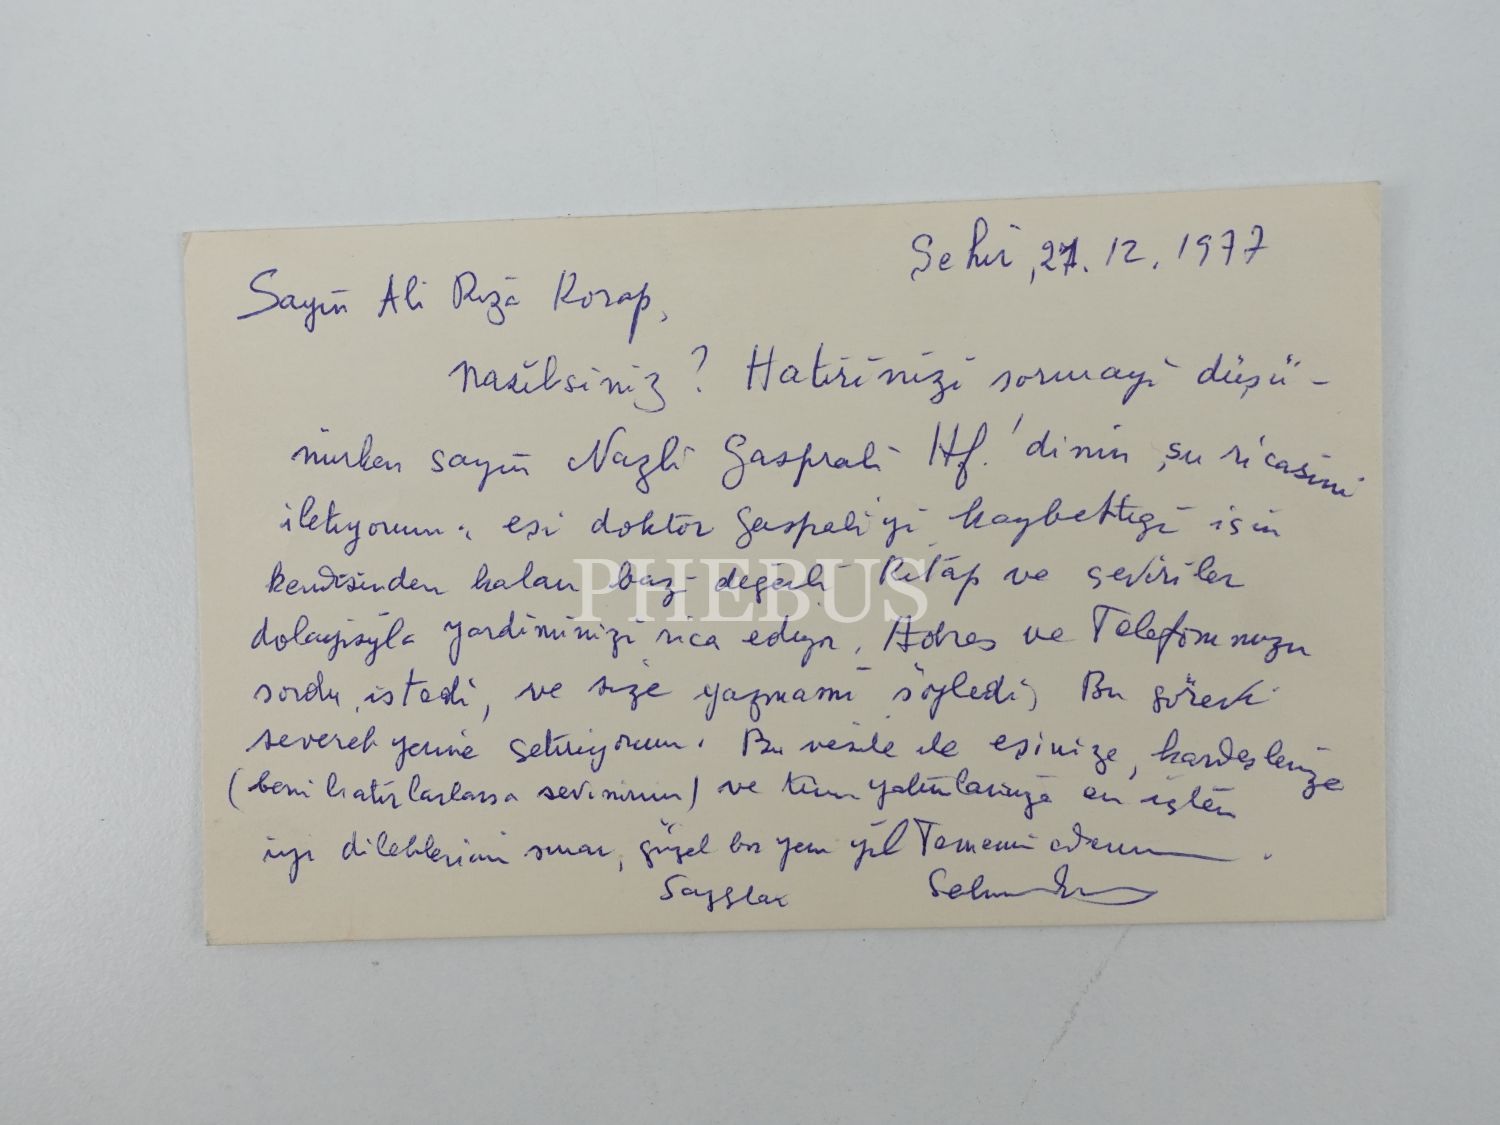 Şehir, 27.12.1977
Sayın Ali Rıza Korap,
Nasılsınız? Hatırınızı sormayı düşü-
nürken sayın Nazlı Gaspralı Hf.'dinin şu ricasını
iletiyorum: eşi doktor Gaspralı'yı kaybettiği için
kendisinden kalan bazı değerli kitap ve çeviriler
dolayısıyla yardımınızı rica ediyor. Adres ve Telefonunuzu
sordu, istedi, ve size yazmamı söyledi; Bu görevi
severek yerine getiriyorum. Bu vesile ile eşinize, kardeşlerinize
(beni hatırlarlarsa sevinirim) ve tüm yakınlarınıza en içten
iyi dileklerimi sunar, güzel bir yeni yıl Temenni ederim.
Saygılar
PHEBUS